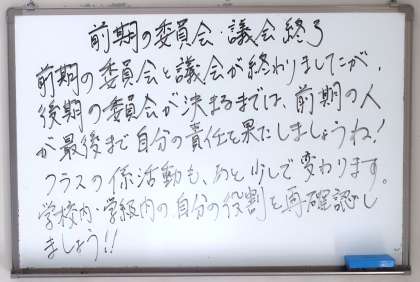 前期の委員会・議会終了
前期の委員会と議会が終わりましたが、
後期の委員会が決まるまでは、前期の人
が最後まで自分の責任を果たしましょうね！
クラスの係活動も、あと少しで変わります。
学校内・学級内の自分の役割を再確認し
ましょう!!